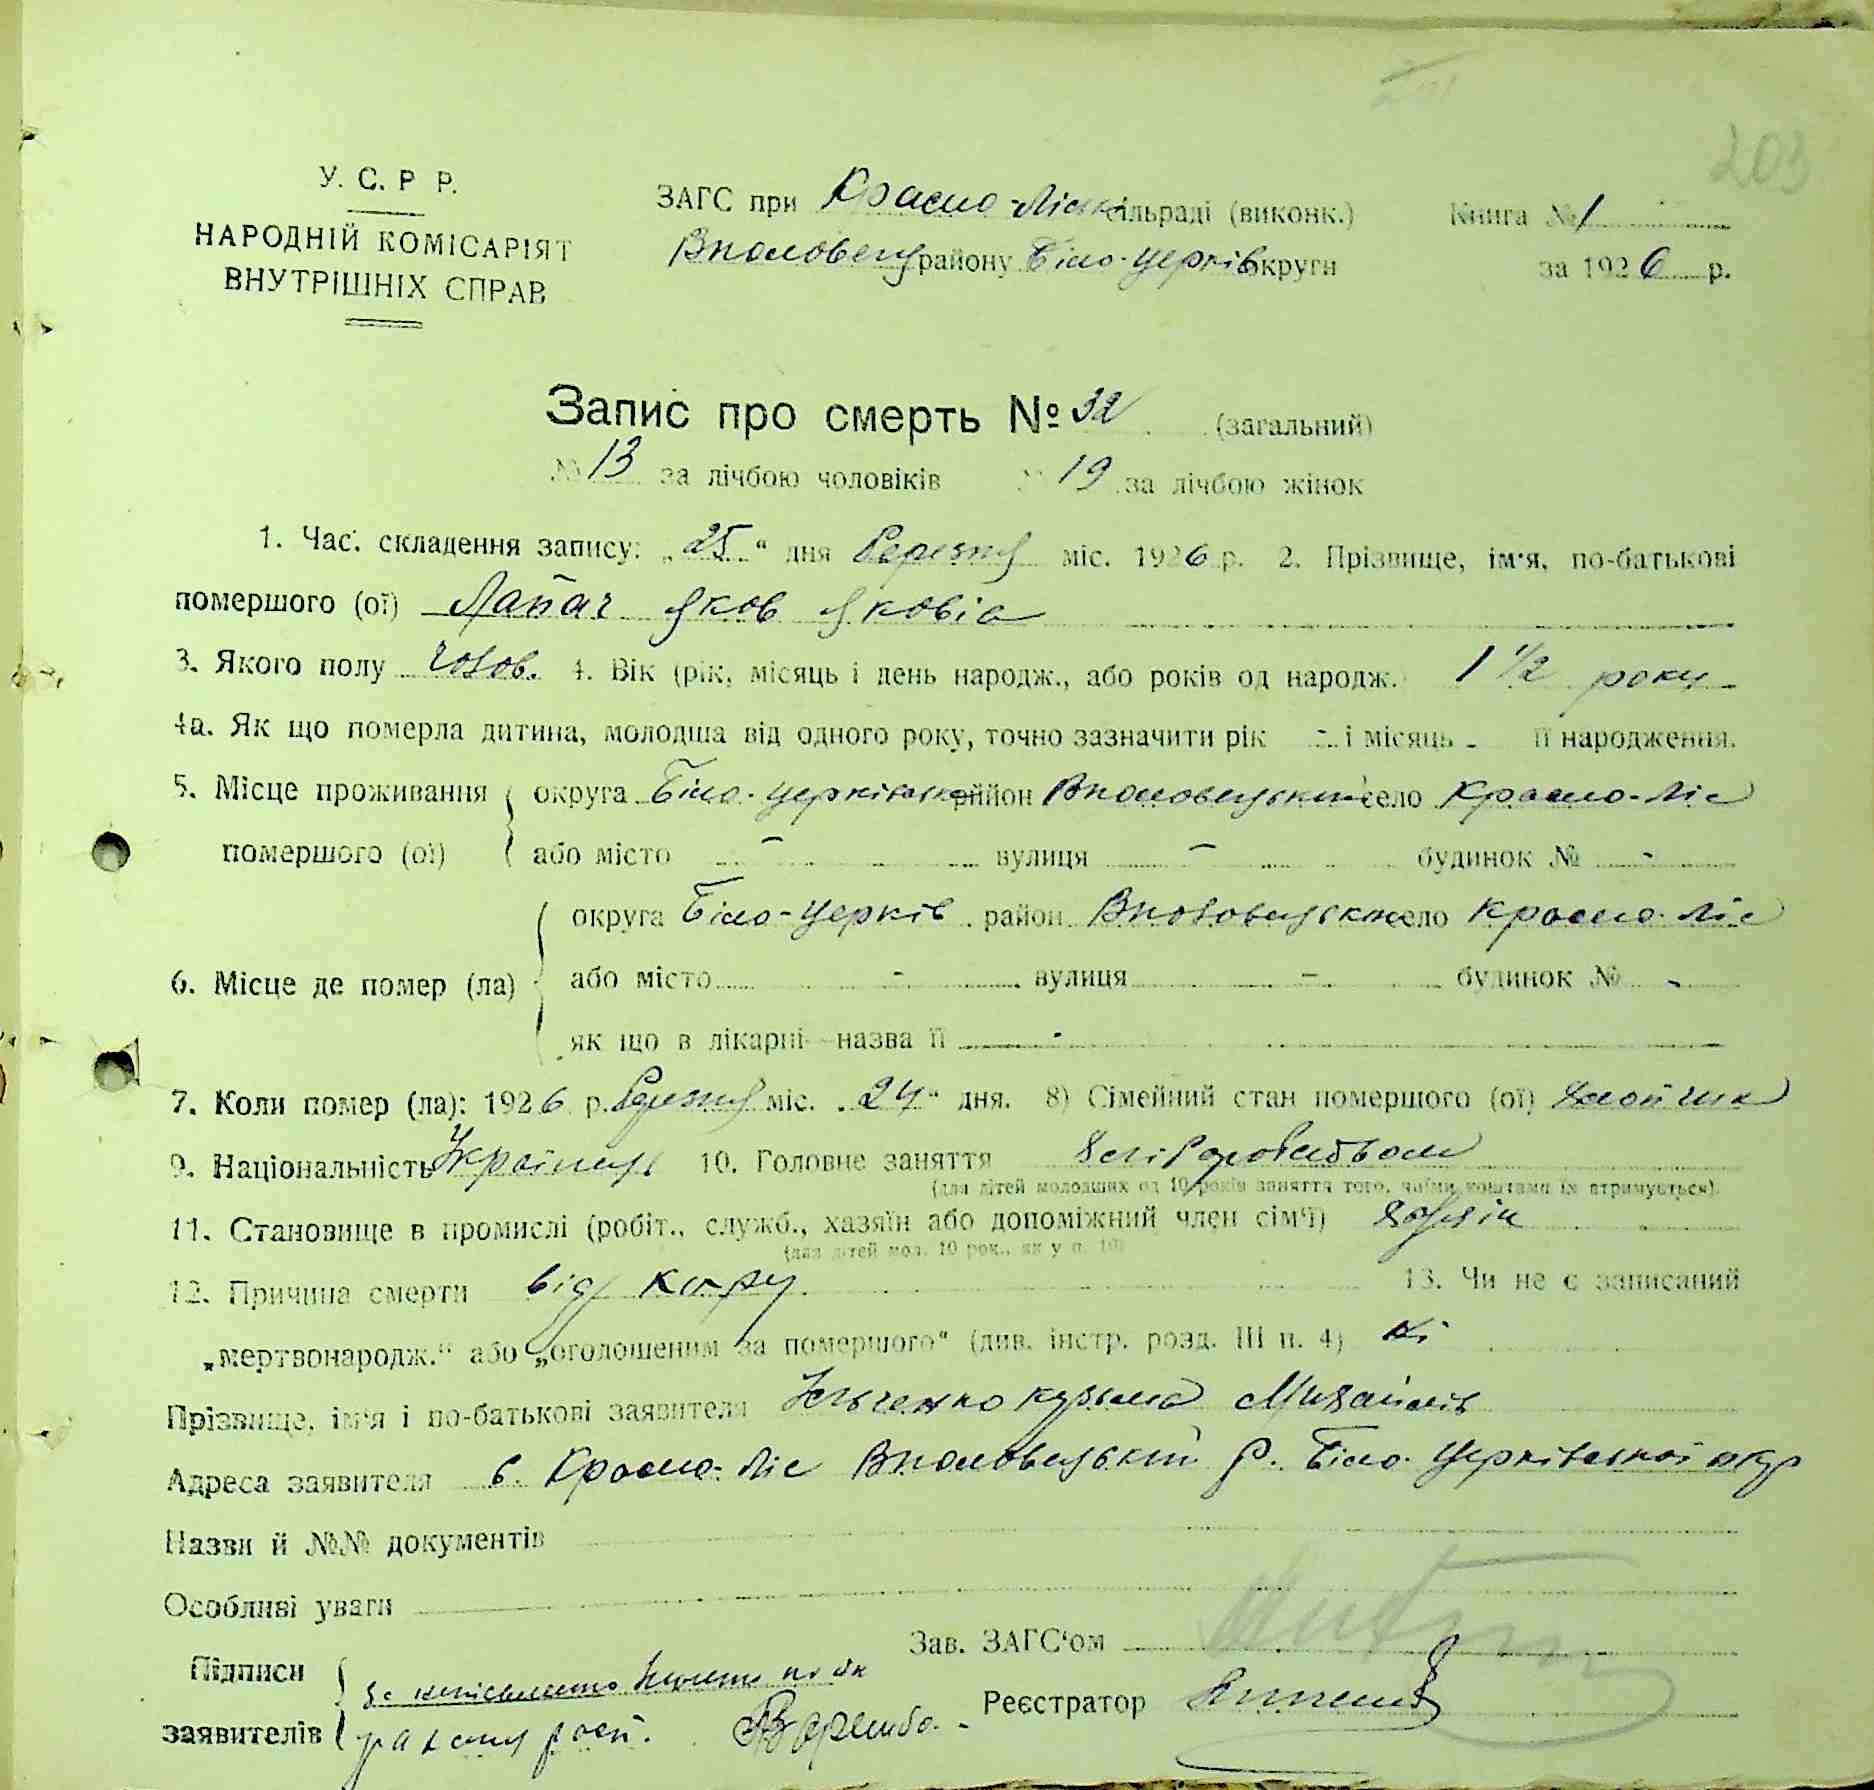 203
У. С. Р Р.
НАРОДНІЙ КОМІСАРІЯТ
ВНУТРІШНІХ СПРАВ
ЗАГС при Красно-Ліськ сільраді (виконк.) Книга № 1
району Біло-церків округи за 1926 р.
Запис про смерть № 32 (загальний)
№ 13 за лічбою чоловіків № 19 за лічбою жінок
1. Час. складення запису: „25“ дня березня міс. 1926 р. 2. Прізвище, ім'я, по-батькові
помершого (ої) Лапач Яков Яковіа
3. Якого полу чолов. 4. Вік (рік, місяць і день народж., або років од народж. 1 1/2 року
4а. Як що померла дитина, молодша від одного року, точно зазначити рік - і місяць - її народження.
5. Місце проживання округа Біло-церківська район село Красно-Ліс
помершого (ої) або місто - вулиця - будинок № -
округа Біло-церків район село Красно-Ліс
6. Місце де помер (ла) або місто - вулиця - будинок № -
як що в лікарні—назва її -
7. Коли помер (ла): 1926 р. березня міс. „24“ дня. 8) Сімейний стан помершого (ої) хлопчик
9. Національність Українець 10. Головне заняття хліборобством
(для літей молодших од 10 років заняття того, чиїми коштами їх втримується).
11. Становище в промислі (робіт., служб., хазяїн або допоміжний член сім'ї) хазяїн
(для літей мол. 10 рок., як у п. 10)
12. Причина смерти від кору 13. Чи не є записаний
„мертвонародж.“ або „оголошеним за помершого“ (див. інстр. розд. III п. 4) Ні
Прізвище, ім'я і по-батькові заявителя Кузьма Михайлів
Адреса заявителя с. Красно-Ліс р. Біло-Церківської окр
Назви й №№ документів
Особливі уваги
Зав. ЗАГС'ом
Підписи
заявителів
Реєстратор